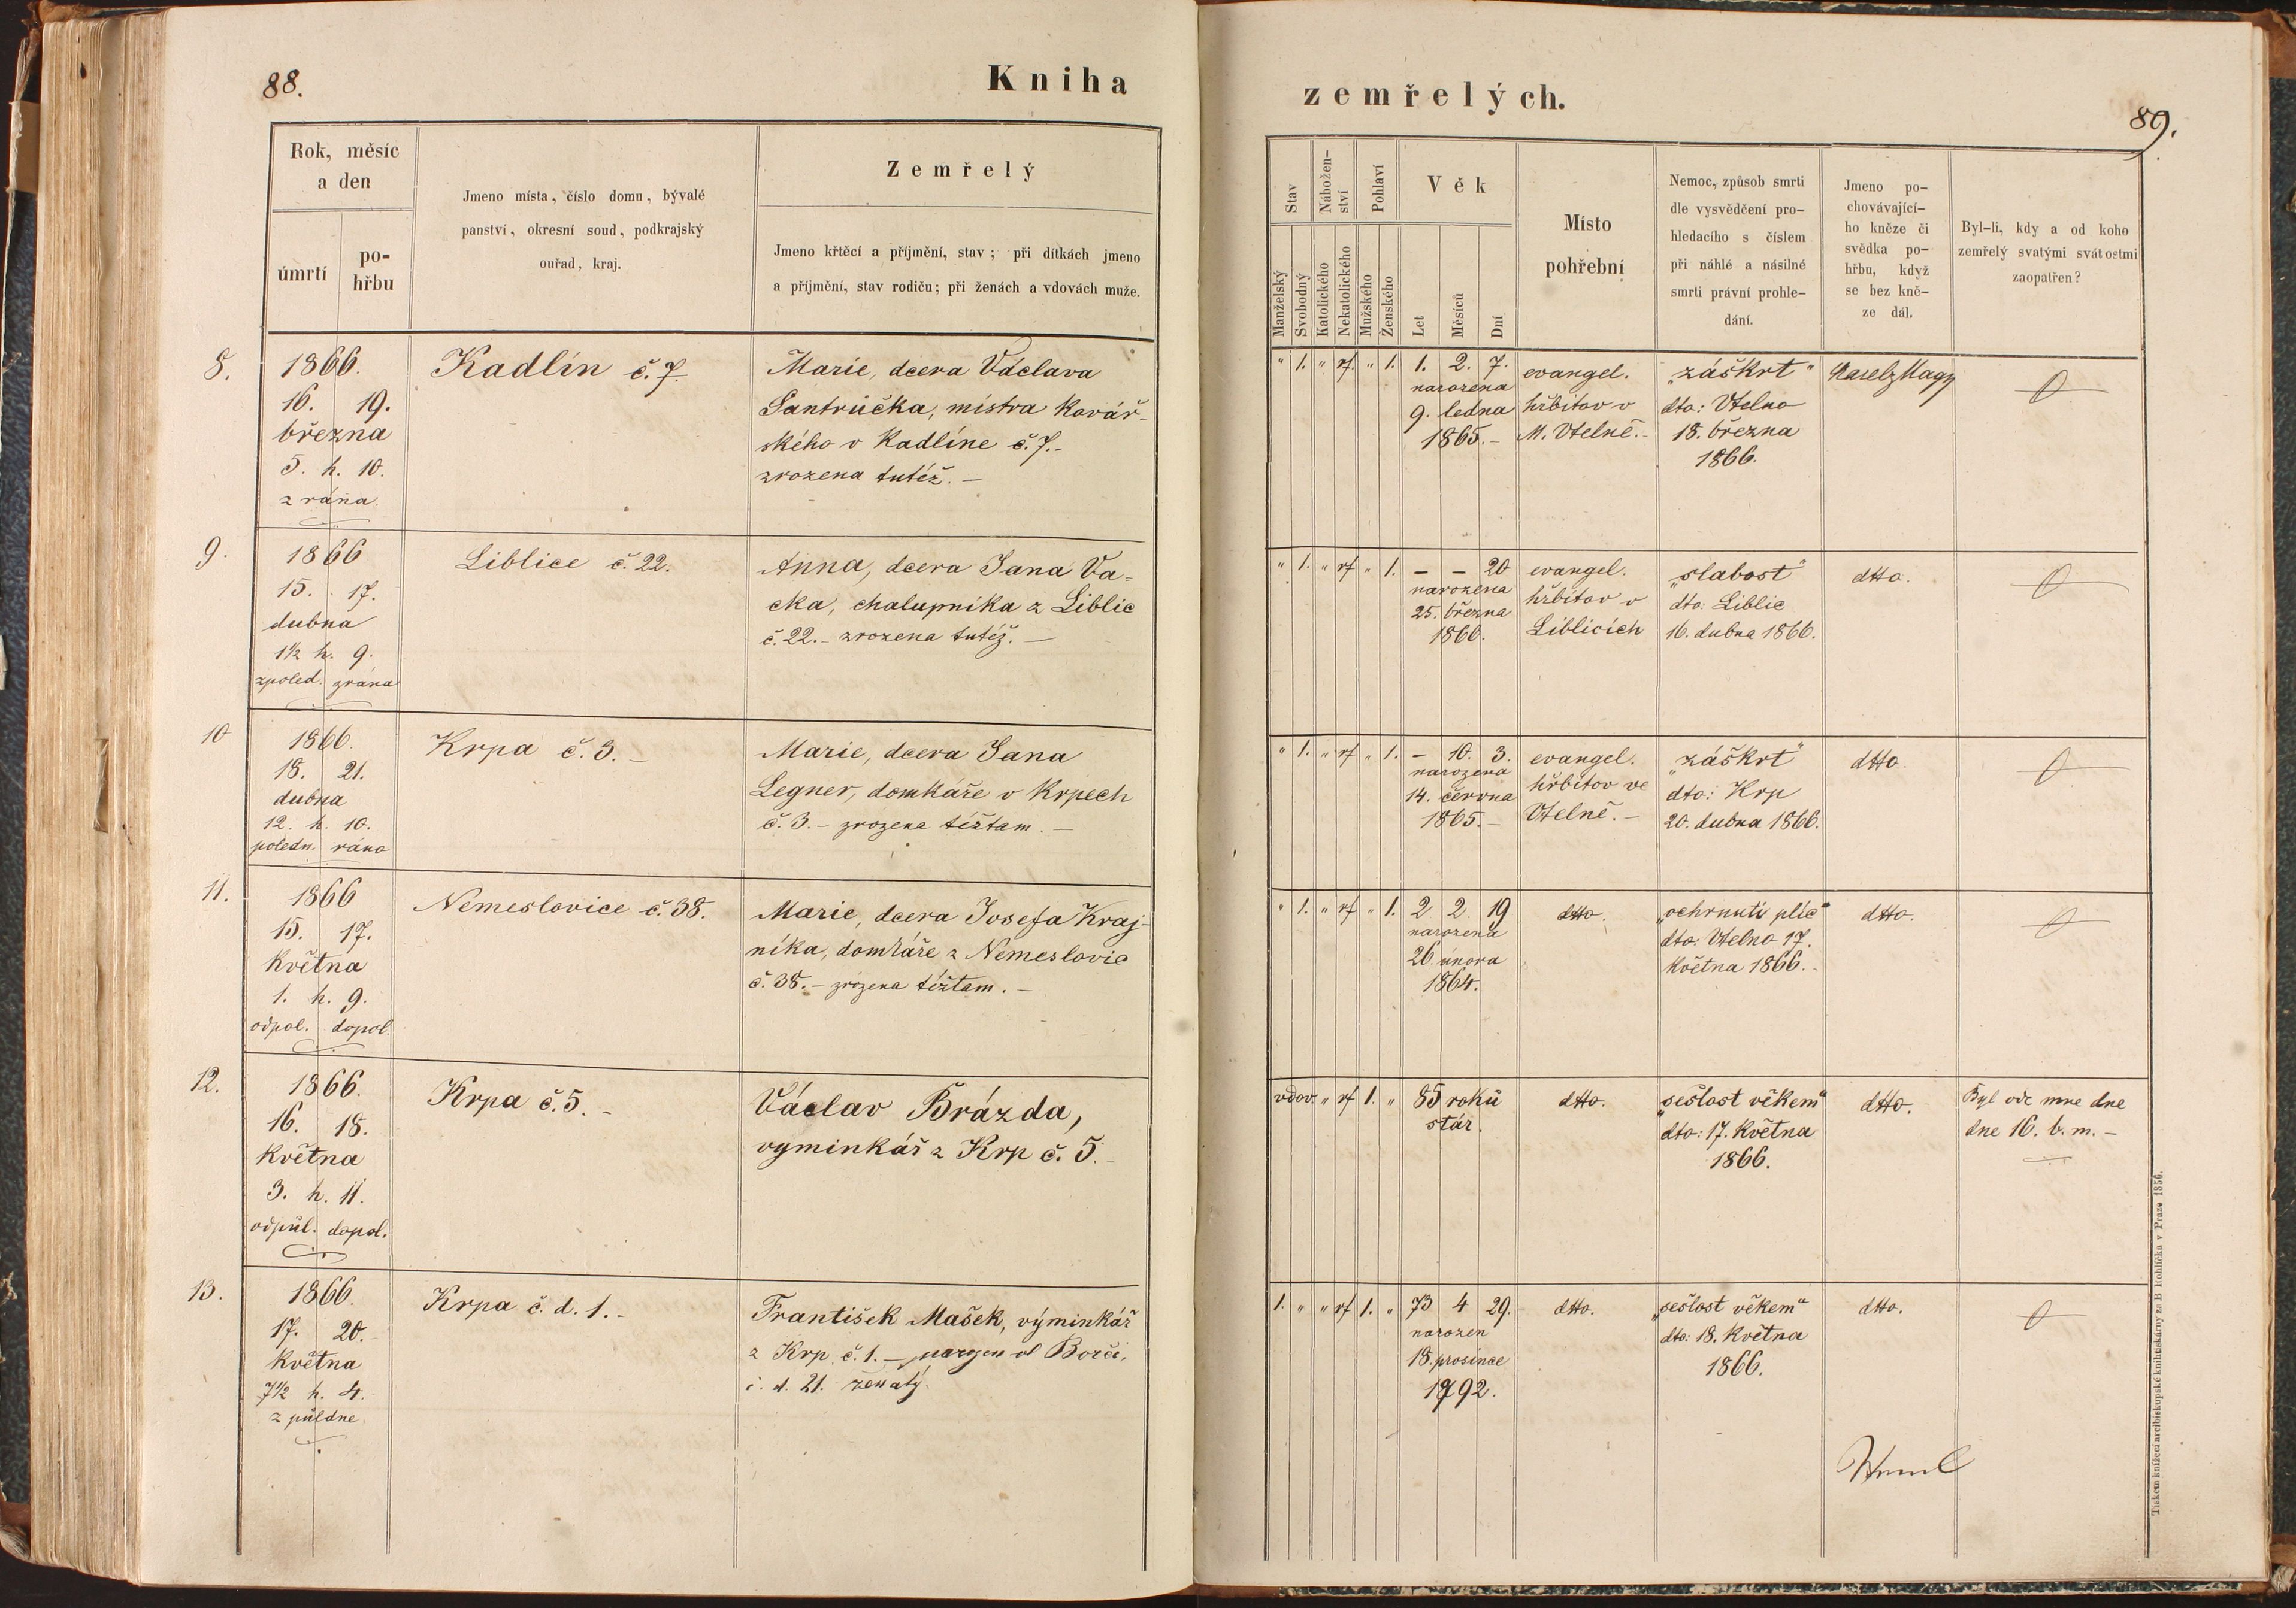 88.
Kniha
Rok, měsíc
a den
úmrtí
po-
hřbu
Jmeno místa, číslo domu, bývalé
panství, okresní soud, podkrajský
ouřad, kraj.
Zemřelý
Jmeno křtěcí a příjmění, stav; při dítkách jmeno
a příjmění, stav rodičů; při ženách a vdovách muže.
8.
1866.
16. 19.
března
5. h. 10.
z rána
Kadlín č. 7.
Marie, dcera Václava
Šantrůčka, mistra kovář-
ského v Kadlíne č. 7.-
zrozena tutéž. —
9.
1866
15. 17.
dubna
1½ h. 9.
zpoled. zrána
Liblice č. 22.
Anna, dcera Jana Va-
cka, chalupníka z Liblic
č. 22. - zrozena tutéž. —
10
1866.
18. 21.
dubna
12. h. 10.
poledn. ráno
Krpa č. 3. -
Marie, dcera Jana
Legner, domkáře v Krpech
č. 3. - zrozena téžtam. —
11.
1866
15. 17.
května
1. h. 9.
odpol. dopol.
Nemeslovice č. 38.
Marie, dcera Josefa Kraj-
níka, domkáře z Nemeslovic
č. 38. - zrozena téžtam. —
12.
1866.
16. 18.
května
3. h. 11.
odpůl. dopol.
Krpa č. 5. -
Václav Brázda,
vyminkář z Krp č. 5. -
13.
1866.
17. 20.
května
7½ h. 4.
z půldne
Krpa č. d. 1. -
František Mašek, výminkář
z Krp č. 1. - narozen
č. d. 21. ženatý.
zemřelých.
89.
Stav
Nábožen-
ství
Pohlaví
Věk
Manželský
Svobodný
Katolického
Nekatolického
Mužského
Ženského
Let
Měsíců
Dní
Místo
pohřební
Nemoc, způsob smrti
dle vysvědčení pro-
hledacího s číslem
při náhlé a násilné
smrti právní prohle-
dání.
Jmeno po-
chovávající-
ho kněze či
svědka po-
hřbu, když
se bez kně-
ze dál.
Byl-li, kdy a od koho
zemřelý svatými svátostmi
zaopatřen?
" 1. " rf. " 1. 1. 2. 7.
narozena
9. ledna
1865. -
evangel.
hřbitov v
M. Vtelně. -
„záškrt"
dto: Vtelno
18. března
1866.
" 1. " rf " 1. — — 20
narozena
25. března
1866.
evangel.
hřbitov v
Liblicích
„slabost"
dto: Liblic
16. dubna 1866.
dtto.
" 1. " rf " 1. — 10. 3.
narozena
14. června
1865. -
evangel.
hřbitov ve
Vtelně. -
„záškrt"
dto: Krp
20. dubna 1866.
dtto.
" 1. " rf " 1. 2 2 19
narozena
26. února
1864.
dtto.
„ochrnutí plíc"
dto: Vtelno 17.
května 1866.
dtto.
vdov. " rf 1. " 85 roků
stár.
dtto.
„sešlost věkem"
dto: 17. května
1866.
dtto.
Byl ode mne dne
dne 16. t. m. -
1. " " rf 1. " 73 4 29.
narozen
18. prosince
1792.
dtto.
„sešlost věkem"
dto: 18. května
1866.
dtto.
Tiskem knížecí arcibiskupské knihtiskárny za B. Rohlíčka v Praze 1856.